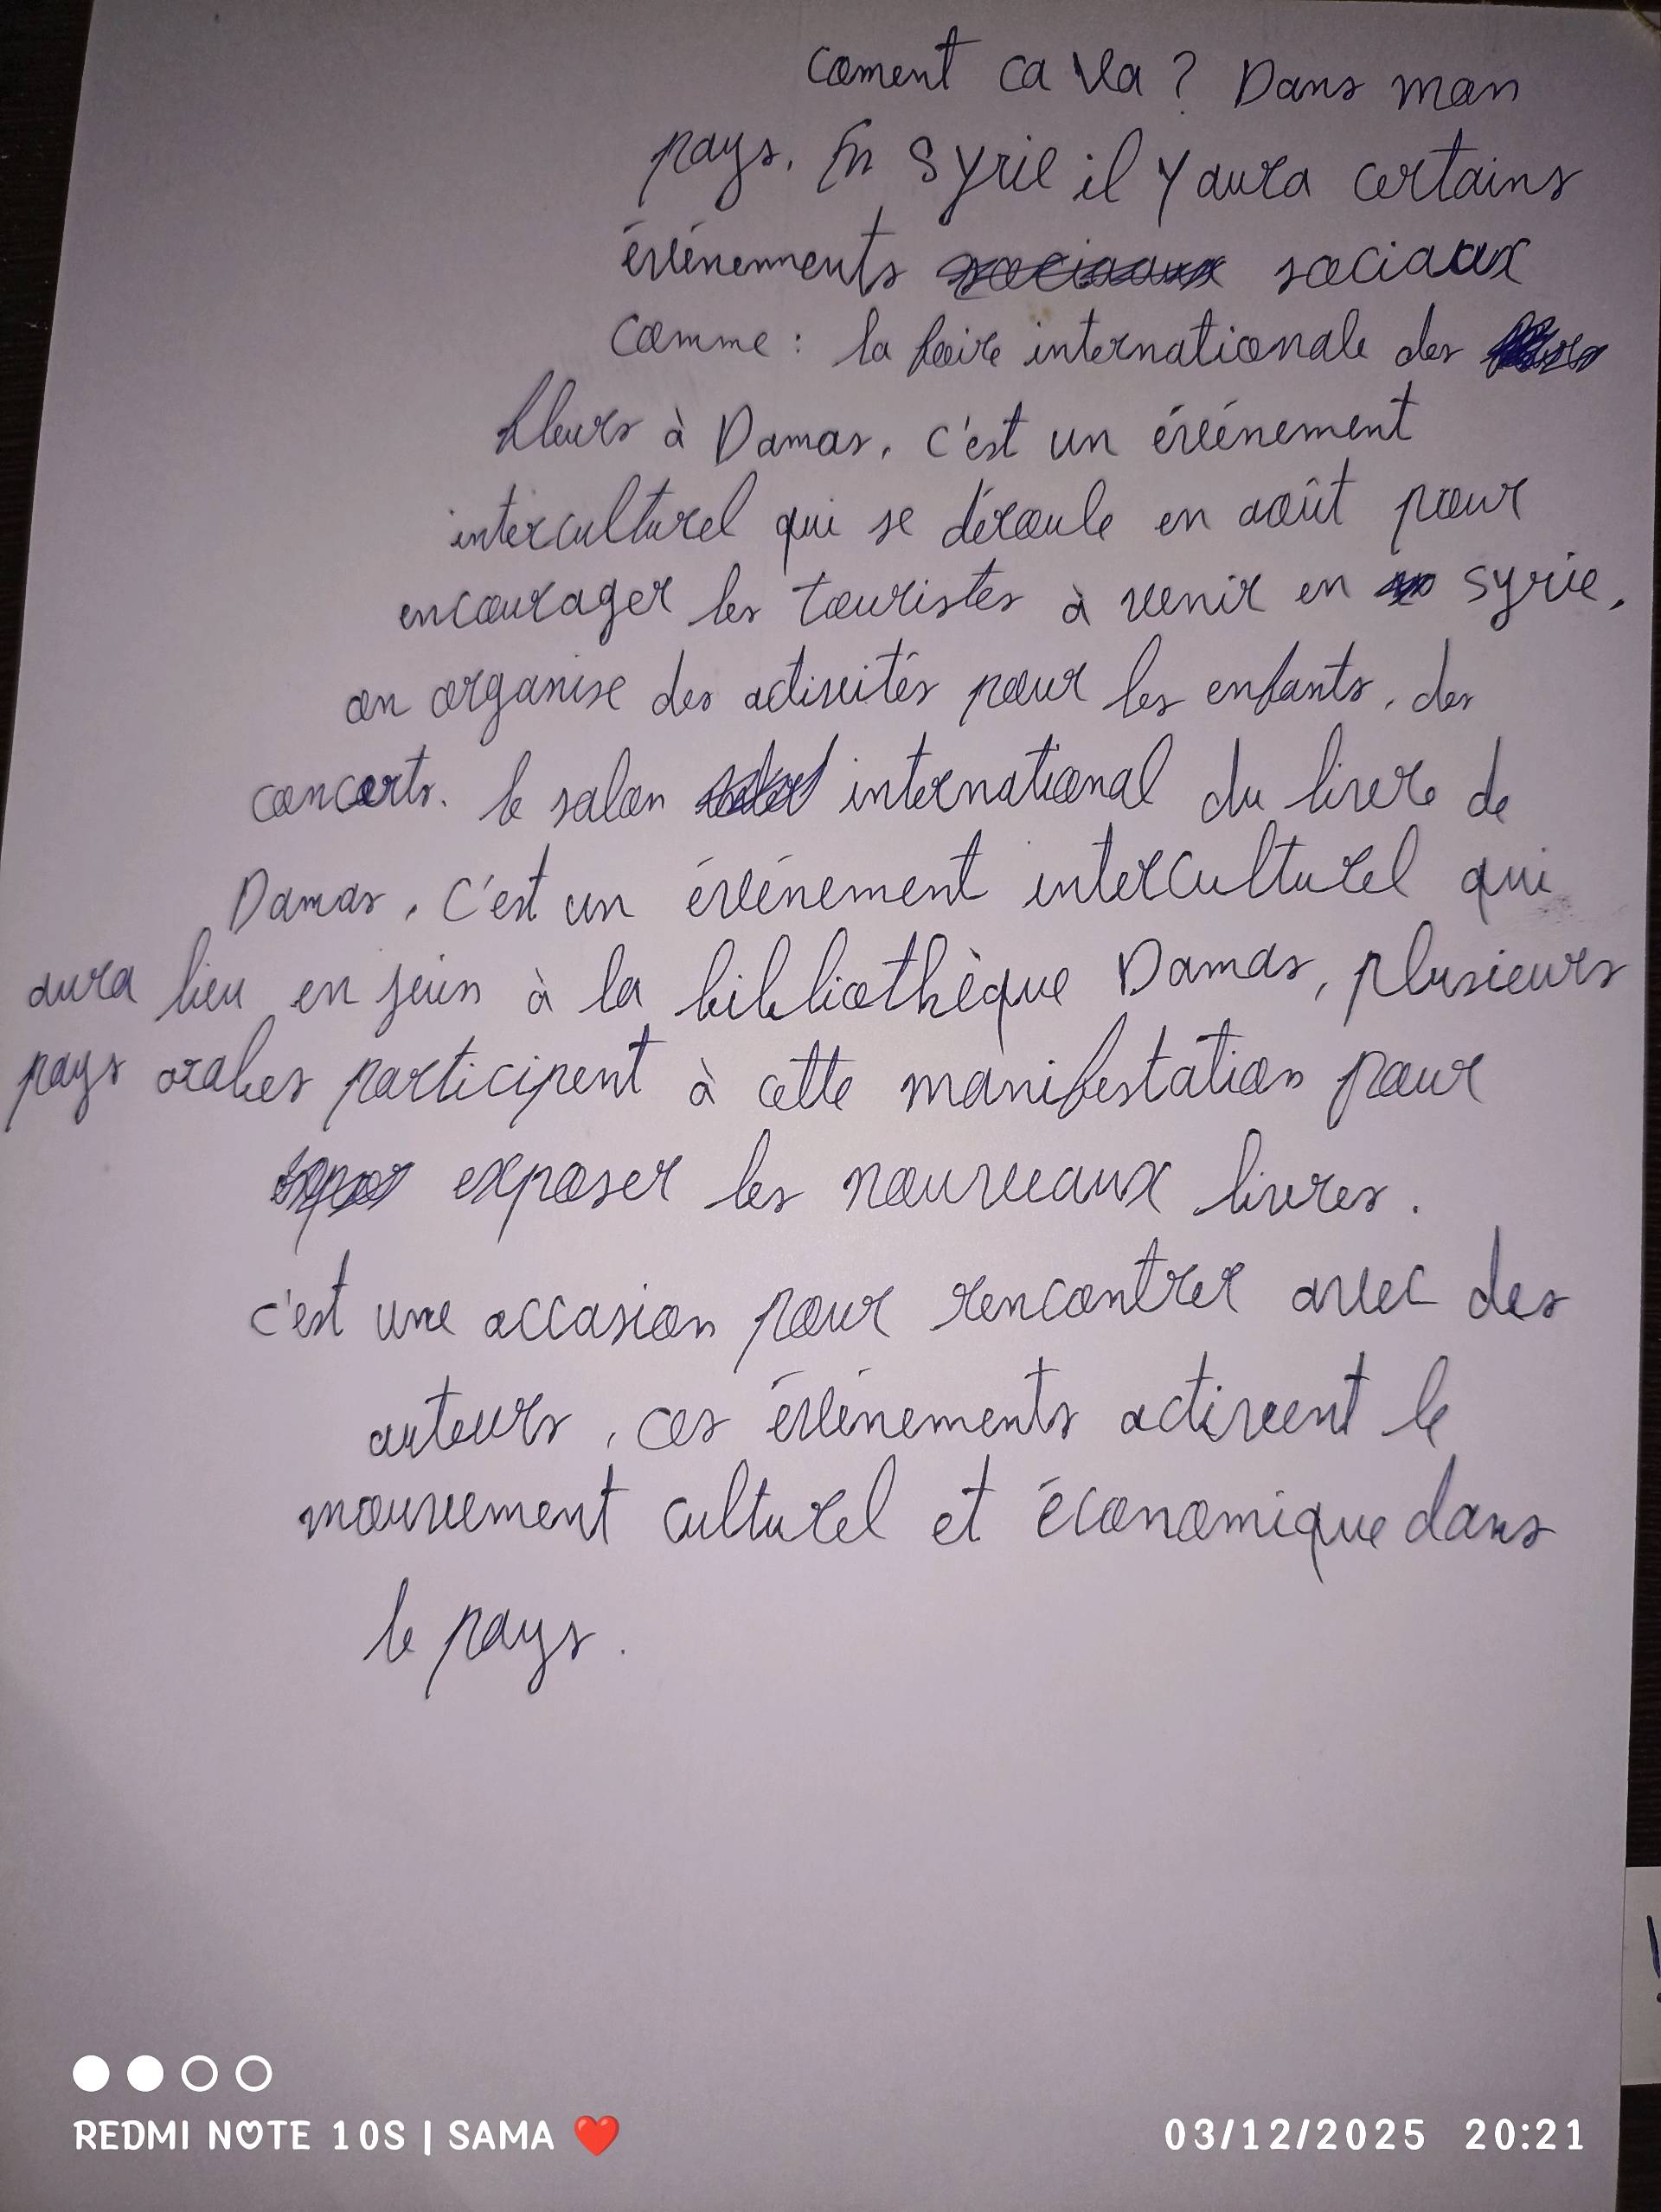 coment ca va ? Dans mon
pays. En Syrie il y aura certains
événements sociaux
comme : la foire internationale des
fleurs à Damas. c'est un événement
interculturel qui se déroule en août pour
encourager les touristes à venir en syrie.
on organise des activités pour les enfants. des
concerts. le salon international du livre de
Damas. C'est un événement interculturel qui
aura lieu en juin à la bibliothèque Damas, plusieurs
pays arabes participent à cette manifestation pour
exposer les nouveaux livres.
c'est une occasion pour rencontrer avec des
auteurs. ces événements activent le
mouvement culturel et économique dans
le pays.
REDMI NOTE 10S | SAMA ❤️
03/12/2025 20:21